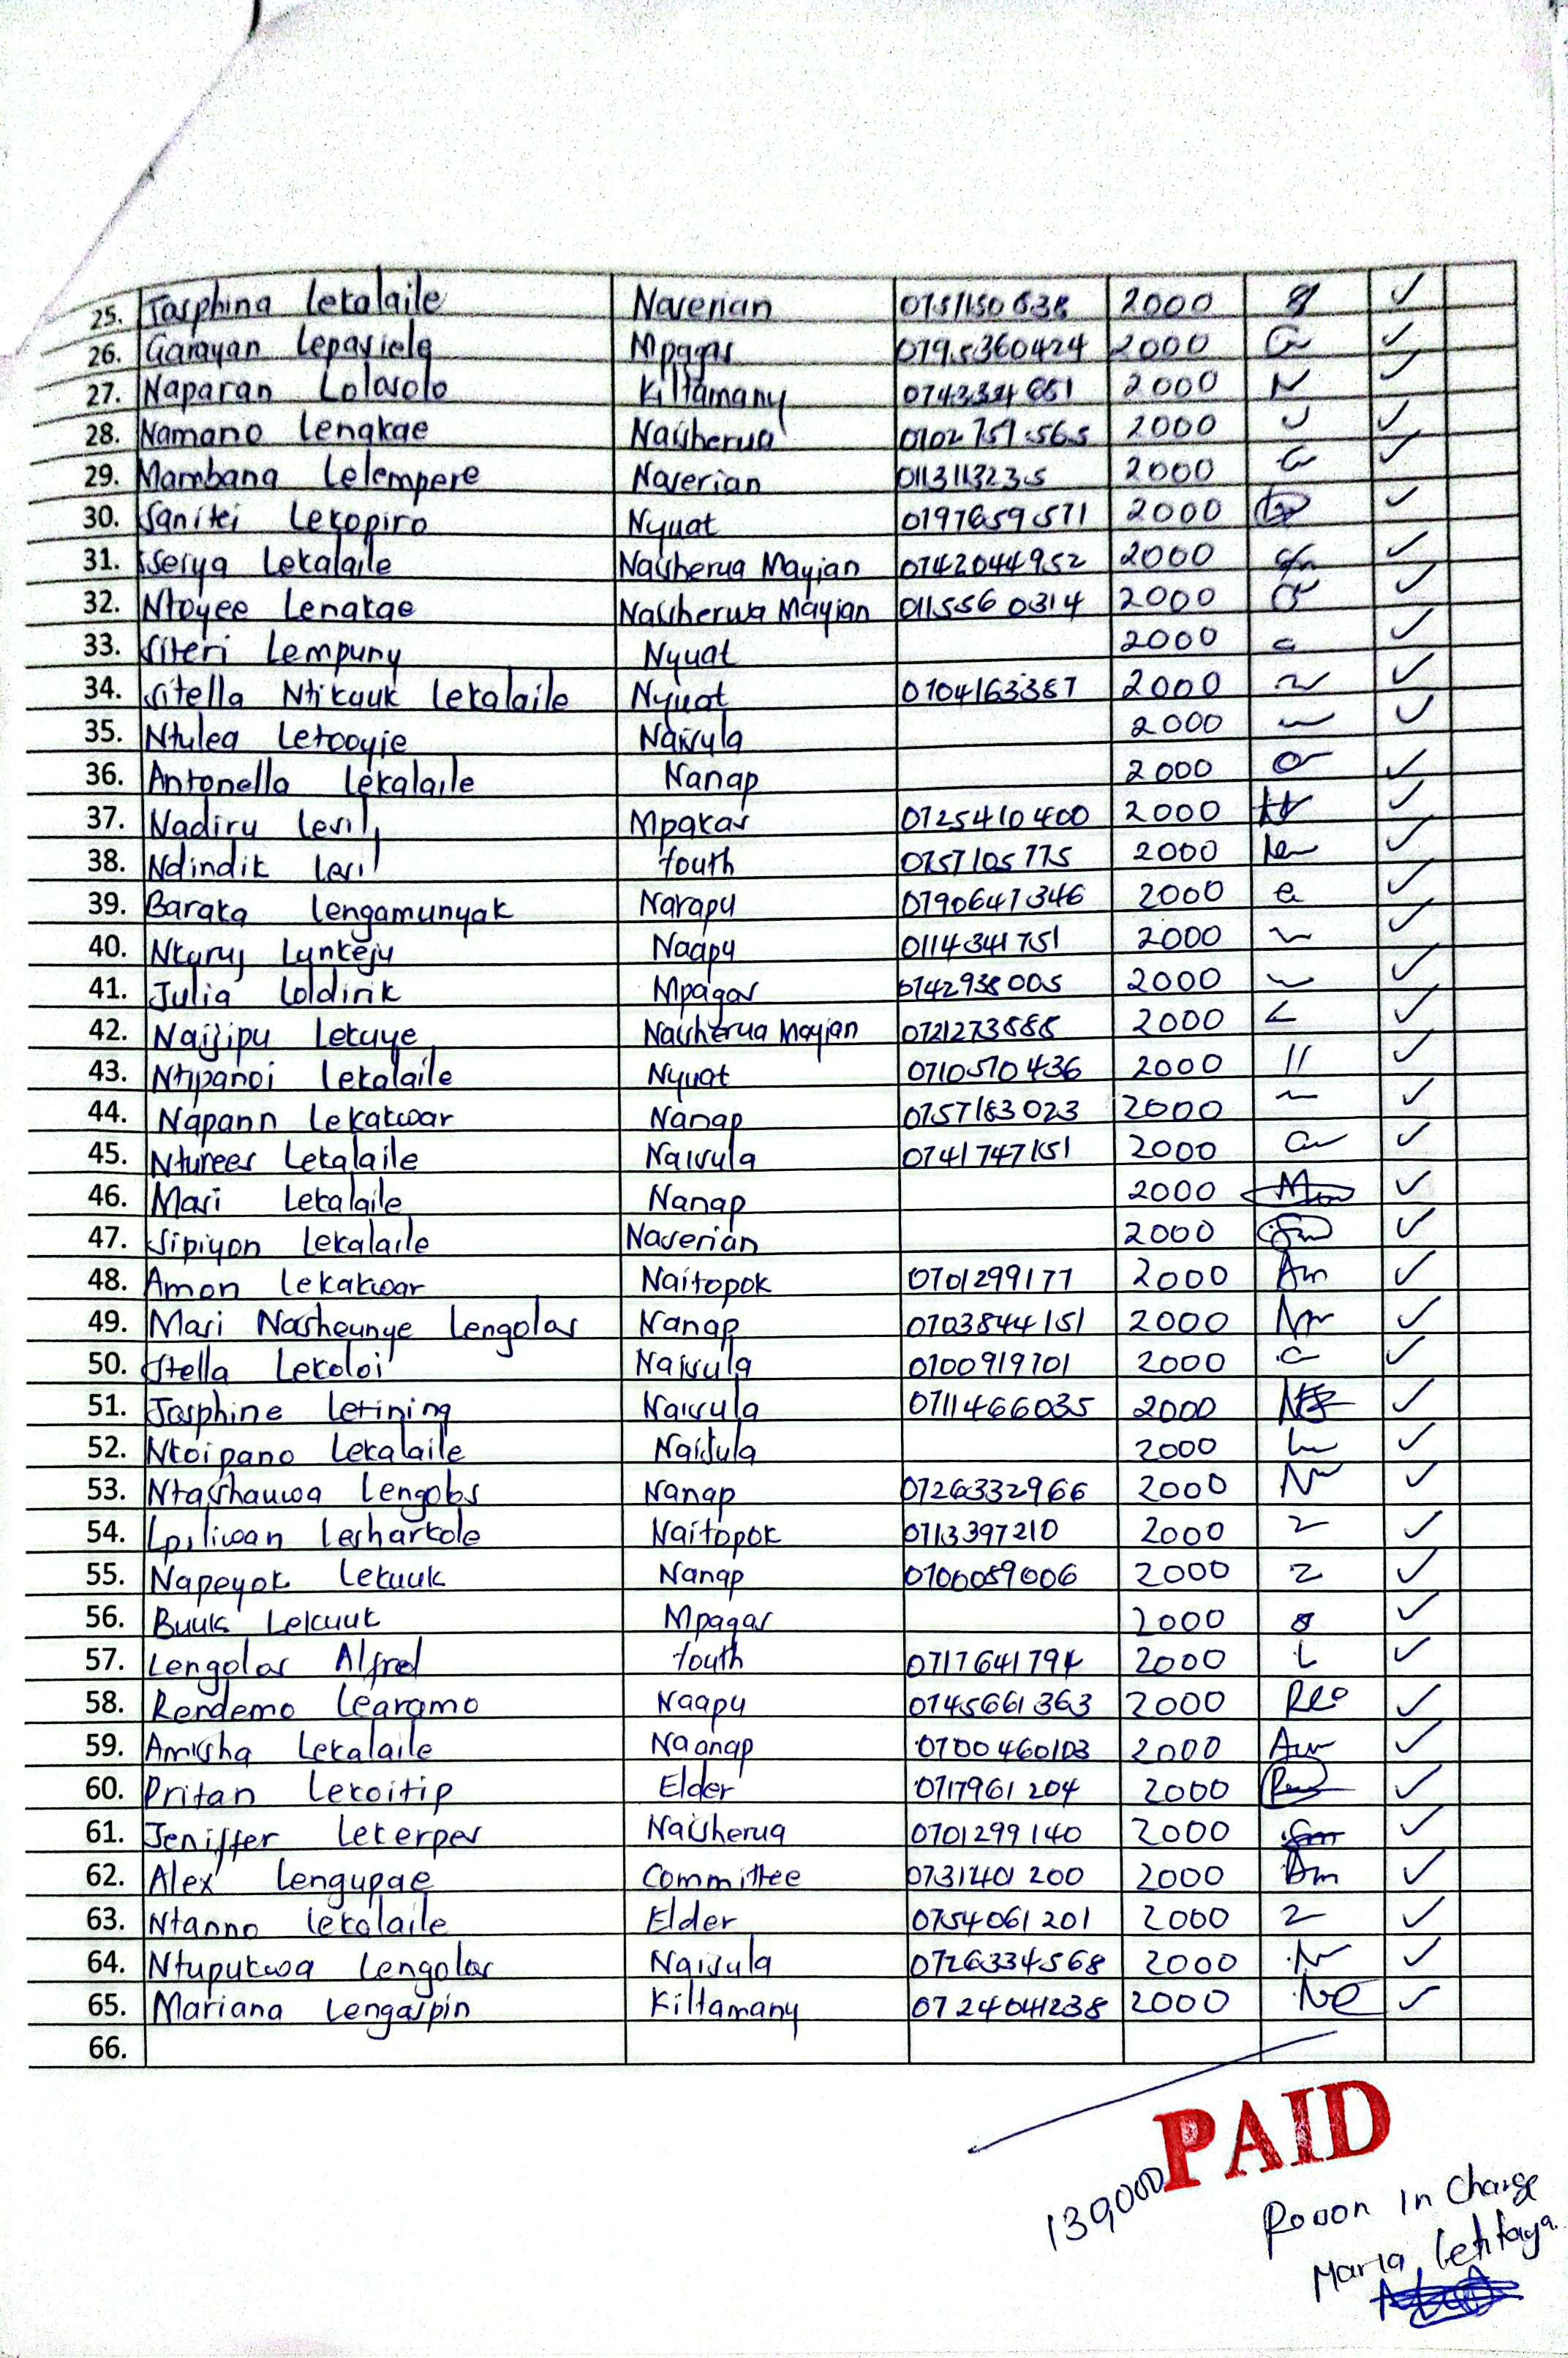 25. Josphina Lekalaile Naserian 0751150638 2000 ✓
26. Garayan Lepasiele Mpagas 0795360424 2000 ✓
27. Naparan Lolosolo Kiltamany 0743334651 2000 N ✓
28. Namano Lengkae Naisherua 0102759565 2000 ✓
29. Mambana Lelempere Naserian 0113113235 2000 ✓
30. Saniki Lekopiro Nyuat 0797659571 2000 ✓
31. Sserya Lekalaile Naisherua Mayian 0742044952 2000 ✓
32. Ntoyee Lengkae Naisherua Mayian 0115560314 2000 ✓
33. Siteri Lempuny Nyuat 2000 ✓
34. Sitella Ntikuuk Lekalaile Nyuat 0704163387 2000 ✓
35. Ntulea Letooyie Naisula 2000 ✓
36. Antonella Lekalaile Nanap 2000 ✓
37. Nadiru Lesil Mpakas 0725410400 2000 ✓
38. Ndindik Lesil Youth 0757105775 2000 ✓
39. Baraka Lengamunyak Narapu 0790647346 2000 ✓
40. Lynkeju Naapu 0114341751 2000 ✓
41. Julia Loldirik Mpagas 0742938005 2000 ✓
42. Naijipu Lekuye Naisherua Mayian 0721273888 2000 ✓
43. Ntipanoi Lekalaile Nyuat 0710570436 2000 ✓
44. Napann Lekakwar Nanap 0757183023 2000 ✓
45. Nturees Lekalaile Naisula 0741747151 2000 ✓
46. Mari Lekalaile Nanap 2000 ✓
47. Sipiyon Lekalaile Naserian 2000 ✓
48. Amon Lekakwar Naitopok 0701299177 2000 Am ✓
49. Mari Nasheunye Lengolos Nanap 0703844151 2000 ✓
50. Stella Lekoloi Naisula 0700919701 2000 ✓
51. Josphine Letining Naisula 0711466035 2000 ✓
52. Ntoipano Lekalaile Naisula 2000 ✓
53. Ntasshauwa Lengolos Nanap 0726332966 2000 ✓
54. Lpiliwan Lesharkole Naitopok 0713397210 2000 ✓
55. Napeyok Lekuuk Nanap 0700089006 2000 ✓
56. Buuk Lekuuk Mpagas 2000 ✓
57. Lengolos Alfred Youth 0717641794 2000 L ✓
58. Rendemo Learamo Naapu 0745661363 2000 ✓
59. Amisha Lekalaile Naanap 0700460103 2000 ✓
60. Pritan Lekoitip Elder 0717961204 2000 ✓
61. Jeniffer Lekerpes Naisherua 0701299140 2000 ✓
62. Alex Lengupae Committee 073140200 2000 ✓
63. Ntanno Lekalaile Elder 0754061201 2000 ✓
64. Ntupukwa Lengolos Naisula 0726334568 2000 ✓
65. Mariana Lengaspin Kiltamany 0724041238 2000 ✓
66.
PAID
130,000
Person In Charge
Maria